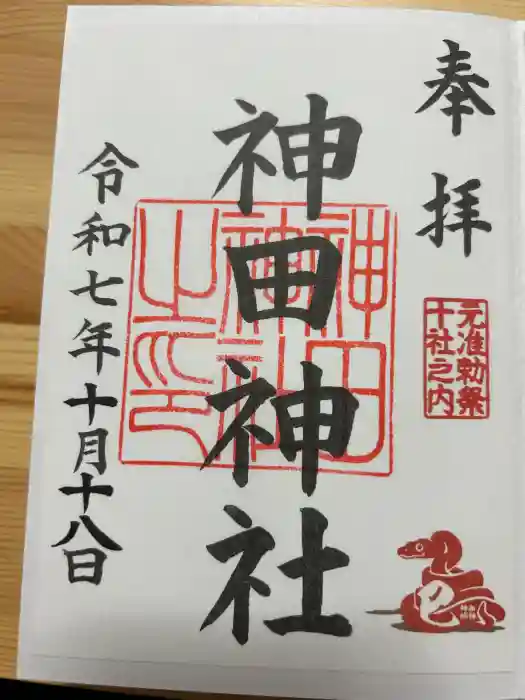 奉拝
元准勅祭
十社之内
巳
神田神社
神田
神社
之印
令和七年十月十八日